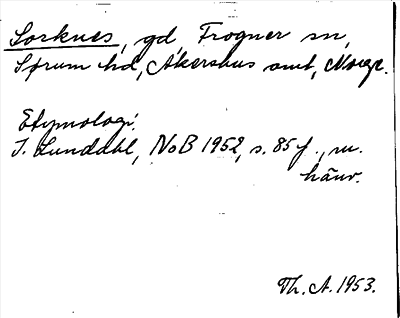 Sorknes, gd, Frogner sn,
Sørum hd, Akershus amt, Norge.
Etymologi:
I. Lundahl, NoB 1952, s. 85 f., m.
hänv.
Th. A. 1953.